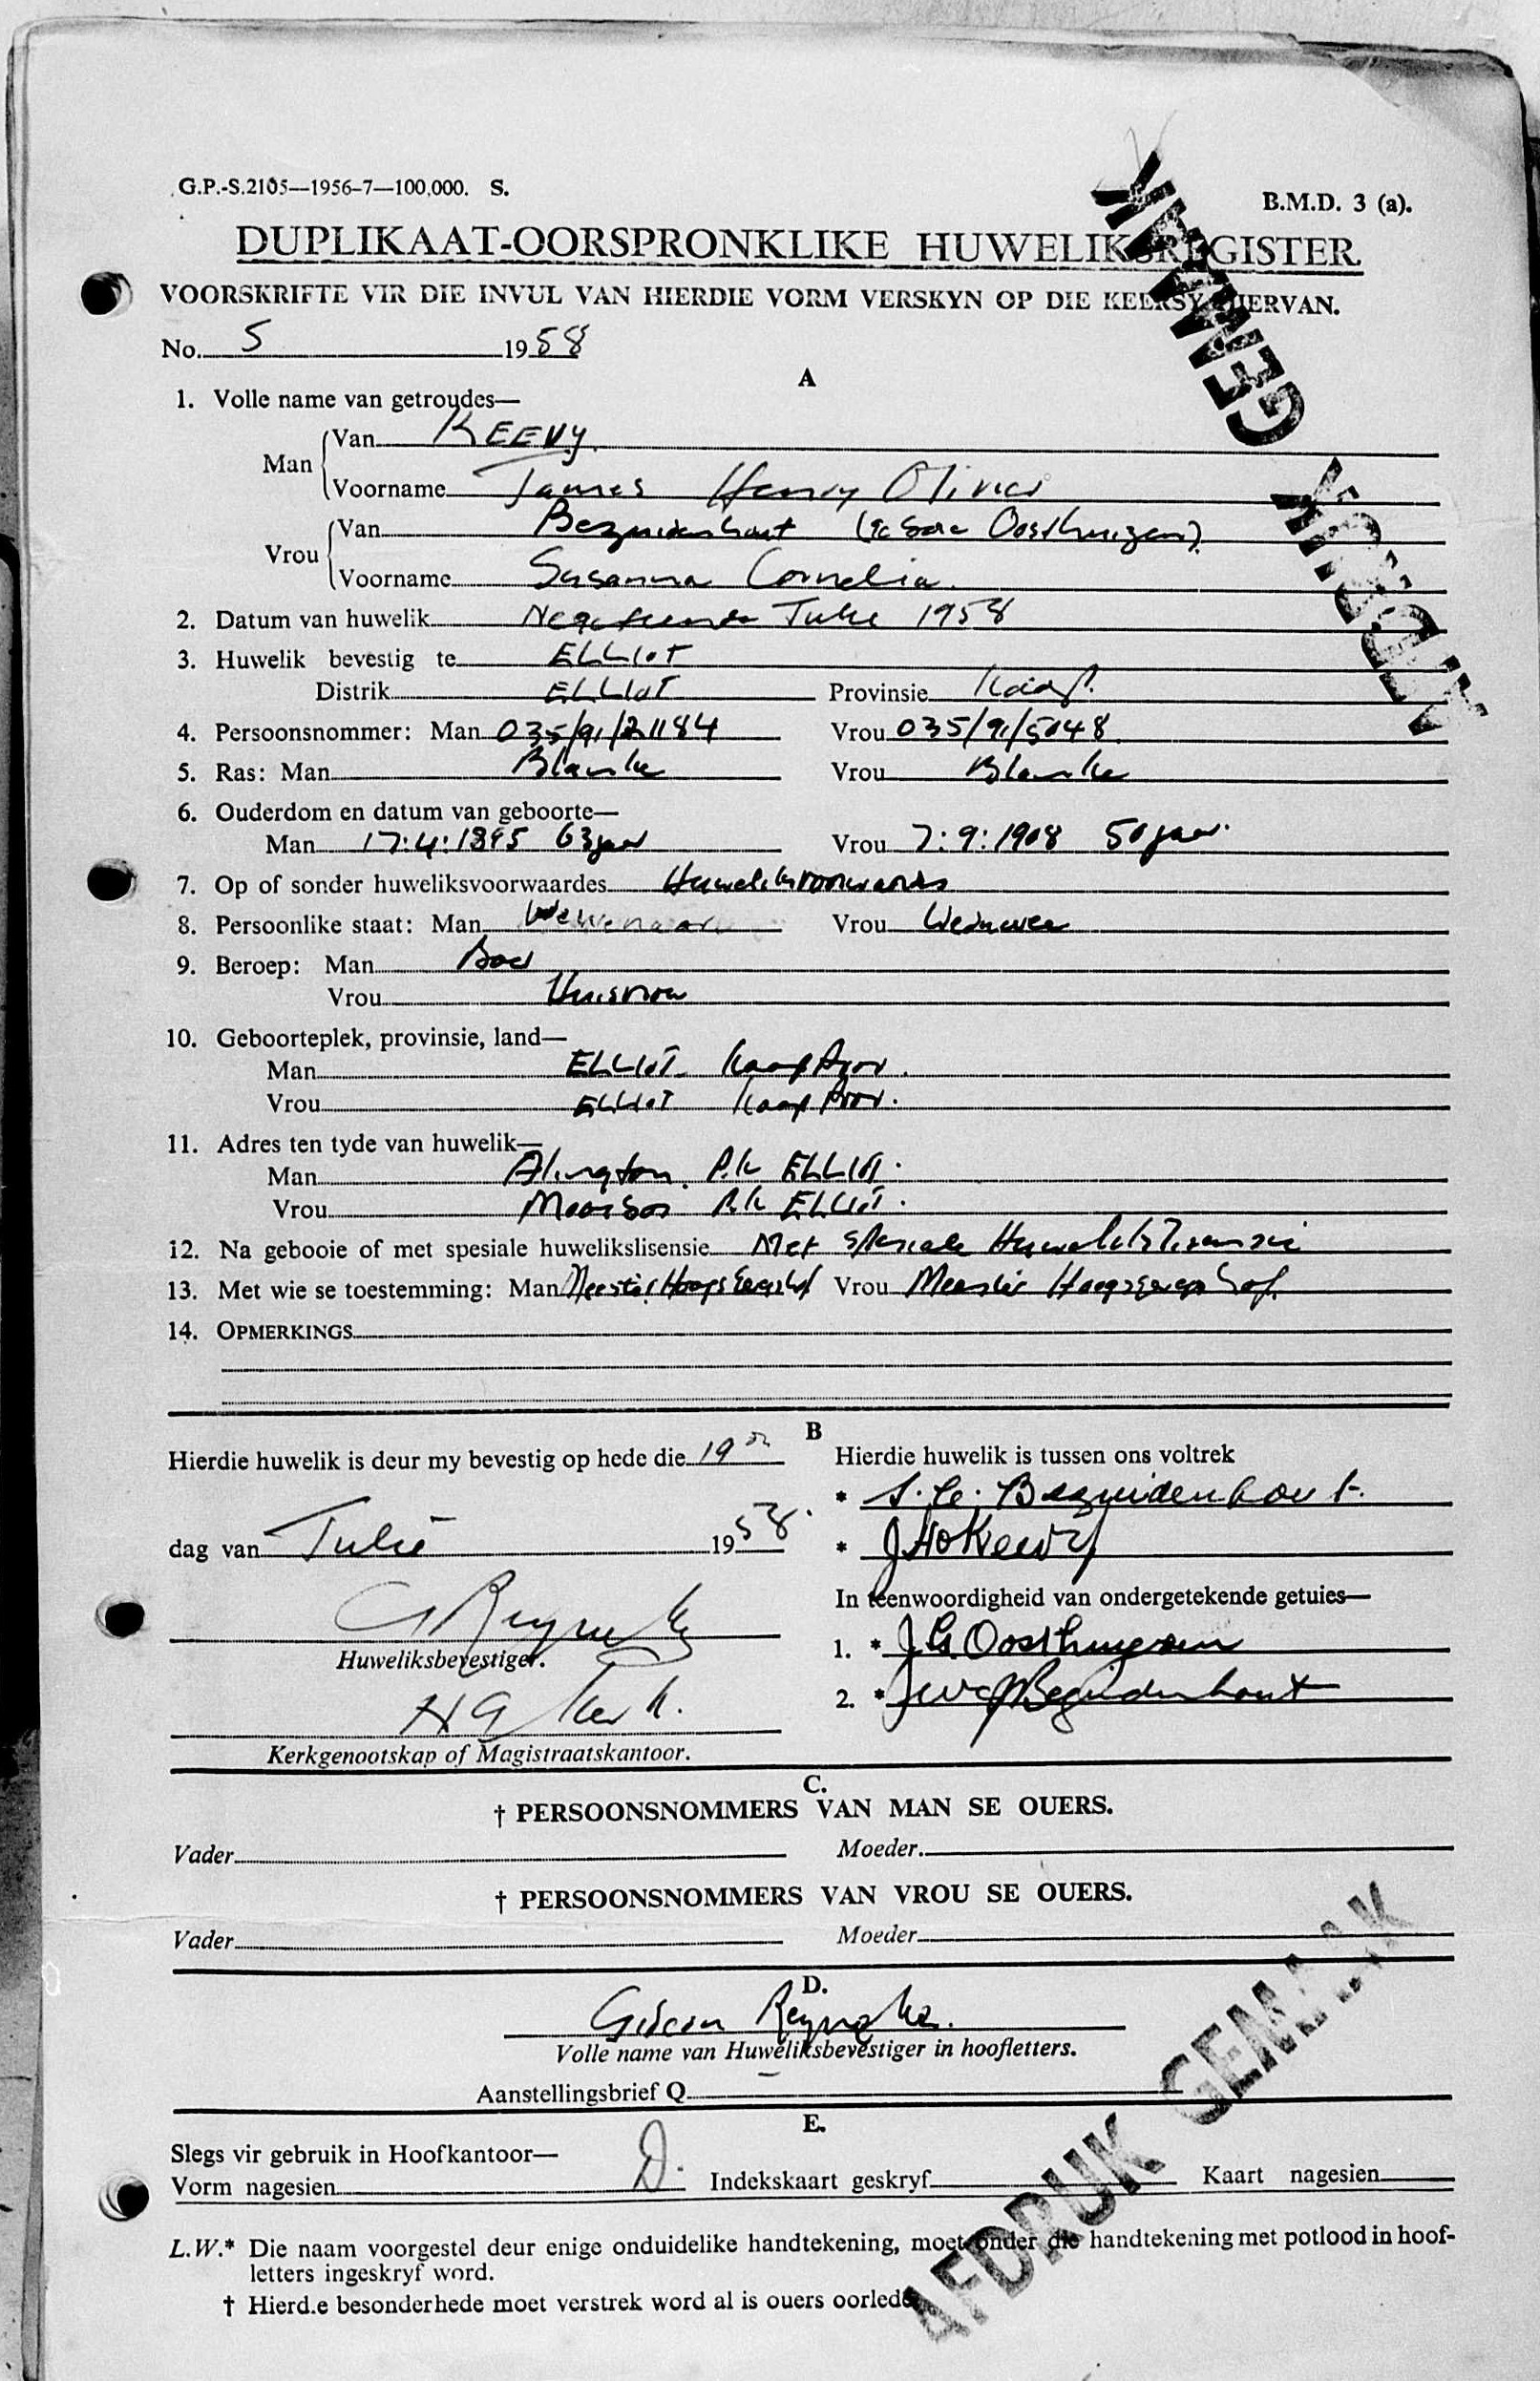 G.P.-S.2105—1956-7—100,000. S.
B.M.D. 3 (a).
DUPLIKAAT-OORSPRONKLIKE HUWELIKSREGISTER.
VOORSKRIFTE VIR DIE INVUL VAN HIERDIE VORM VERSKYN OP DIE KEERSY HIERVAN.
AFDRUK GEMAAK
No. 5 1958
A
1. Volle name van getroudes—
Man Van KEEVY.
Voorname James Henry Olivier
Vrou Van Bezuidenhout (gebore Oosthuizen)
Voorname Susanna Cornelia.
2. Datum van huwelik Negetiende Julie 1958
3. Huwelik bevestig te ELLIOT
Distrik ELLIOT Provinsie Kaap.
4. Persoonsnommer: Man 035/91/21184 Vrou 035/91/5048
5. Ras: Man Blanke Vrou Blanke
6. Ouderdom en datum van geboorte—
Man 17:4:1895 63 jaar Vrou 7:9:1908 50 jaar.
7. Op of sonder huweliksvoorwaardes Huweliksvoorwaardes
8. Persoonlike staat: Man Wewenaar Vrou Weduwee
9. Beroep: Man Boer
Vrou Huisvrou
10. Geboorteplek, provinsie, land—
Man ELLIOT. Kaap Prov.
Vrou ELLIOT Kaap Prov.
11. Adres ten tyde van huwelik—
Man Alington. P.k ELLIOT.
Vrou Mooibos P.k ELLIOT.
12. Na gebooie of met spesiale huwelikslisensie Met Spesiale Huwelikslisensie
13. Met wie se toestemming: Man Meester Hooggeregshof Vrou Meester Hooggeregshof.
14. OPMERKINGS
B
Hierdie huwelik is deur my bevestig op hede die 19de
dag van Julie 1958.
G Reyneke
Huweliksbevestiger.
N G Kerk.
Kerkgenootskap of Magistraatskantoor.
Hierdie huwelik is tussen ons voltrek
* S. C. Bezuidenhout.
* J H O Keevy
In teenwoordigheid van ondergetekende getuies—
1. * J. G. Oosthuizen
2. * Bezuidenhout
C.
† PERSOONSNOMMERS VAN MAN SE OUERS.
Vader Moeder.
† PERSOONSNOMMERS VAN VROU SE OUERS.
Vader Moeder
D.
Gideon Reyneke.
Volle name van Huweliksbevestiger in hoofletters.
Aanstellingsbrief Q. —
E.
Slegs vir gebruik in Hoofkantoor—
Vorm nagesien D. Indekskaart geskryf Kaart nagesien
AFDRUK GEMAAK
L.W.* Die naam voorgestel deur enige onduidelike handtekening, moet onder die handtekening met potlood in hoof-
letters ingeskryf word.
† Hierd.e besonderhede moet verstrek word al is ouers oorlede.